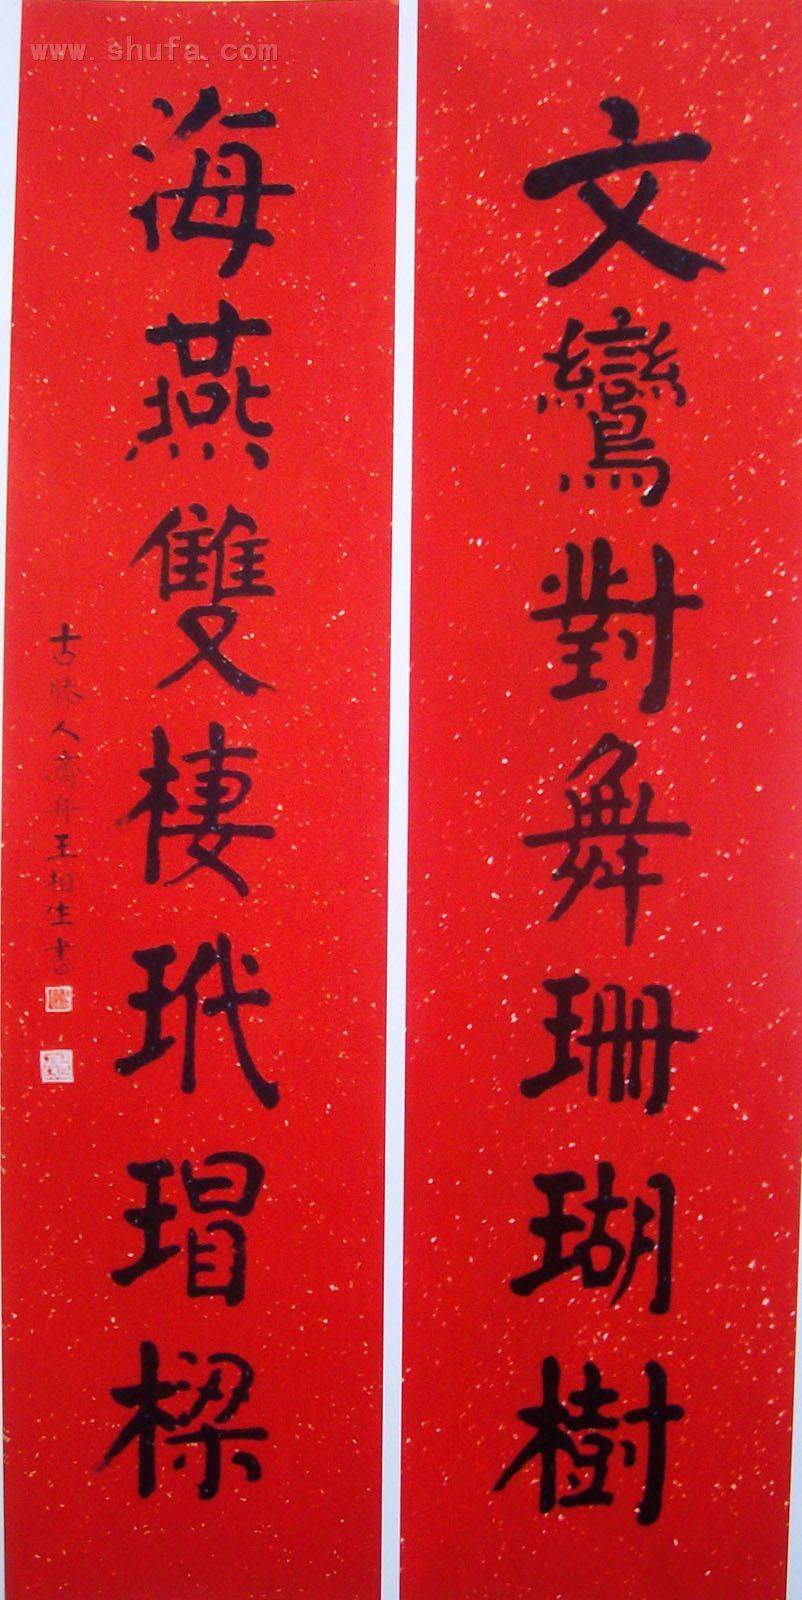 www.shufa.com
文鸞對舞珊瑚樹
海燕雙棲玳瑁樑
古滕人萬舟王相生書